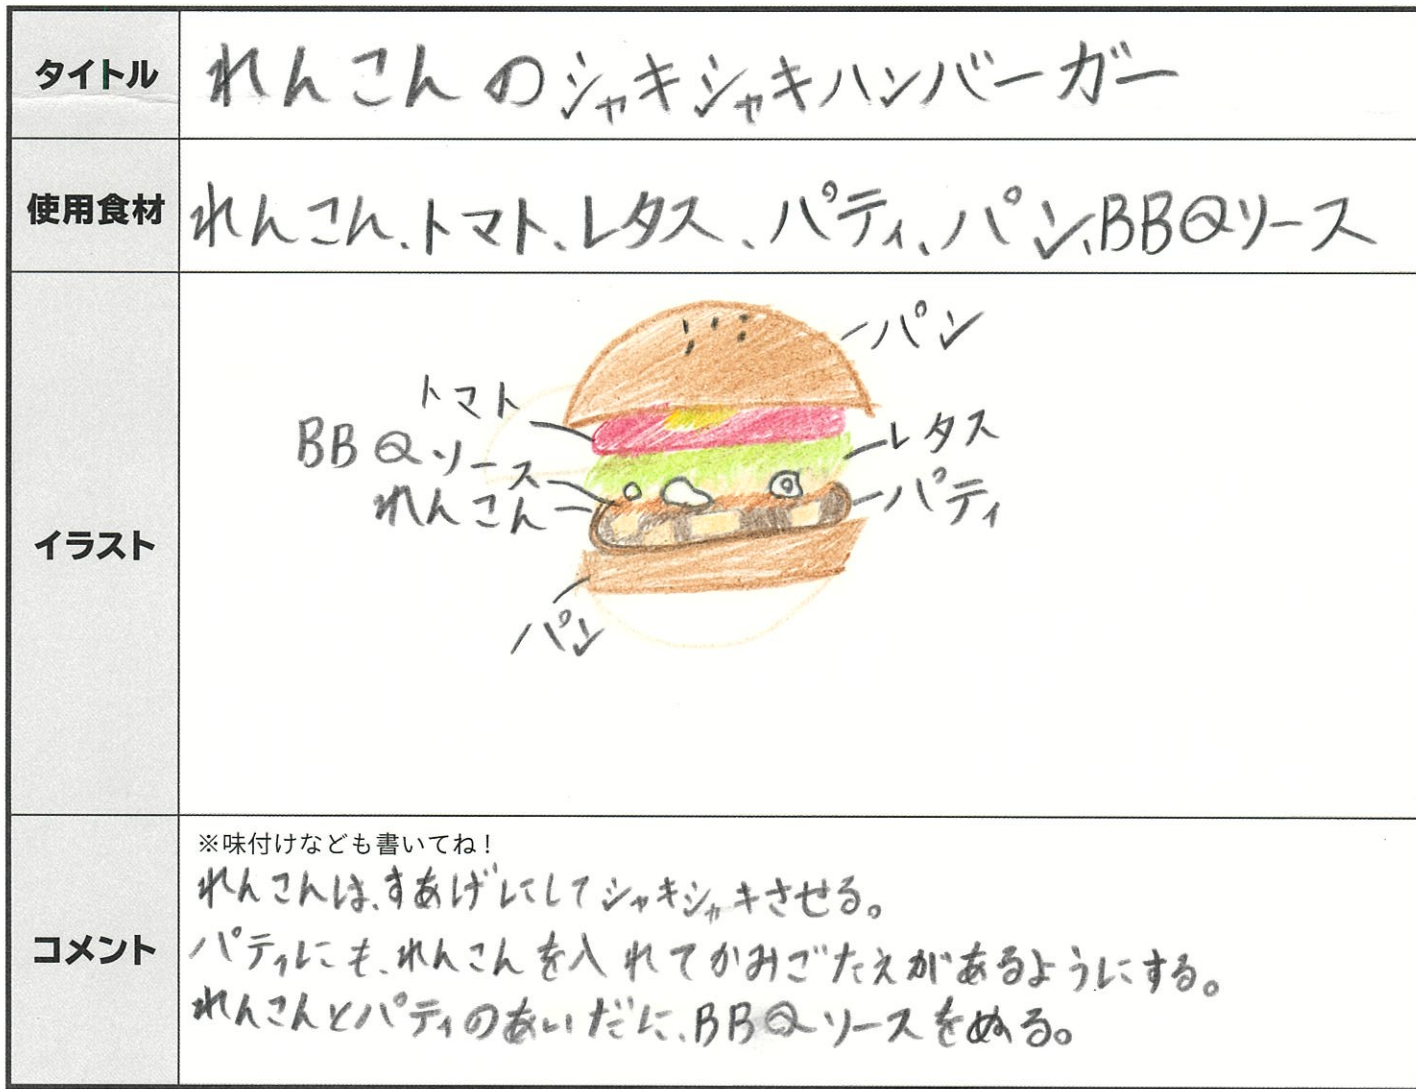 タイトル
れんこんのシャキシャキハンバーガー
使用食材
れんこん、トマト、レタス、パティ、パン、BBQソース
イラスト
パン
トマト
BBQソース
れんこん
レタス
パティ
パン
コメント
※味付けなども書いてね！
れんこんは、すあげにしてシャキシャキさせる。
パティにも、れんこんを入れてかみごたえがあるようにする。
れんこんとパティのあいだに、BBQソースをぬる。